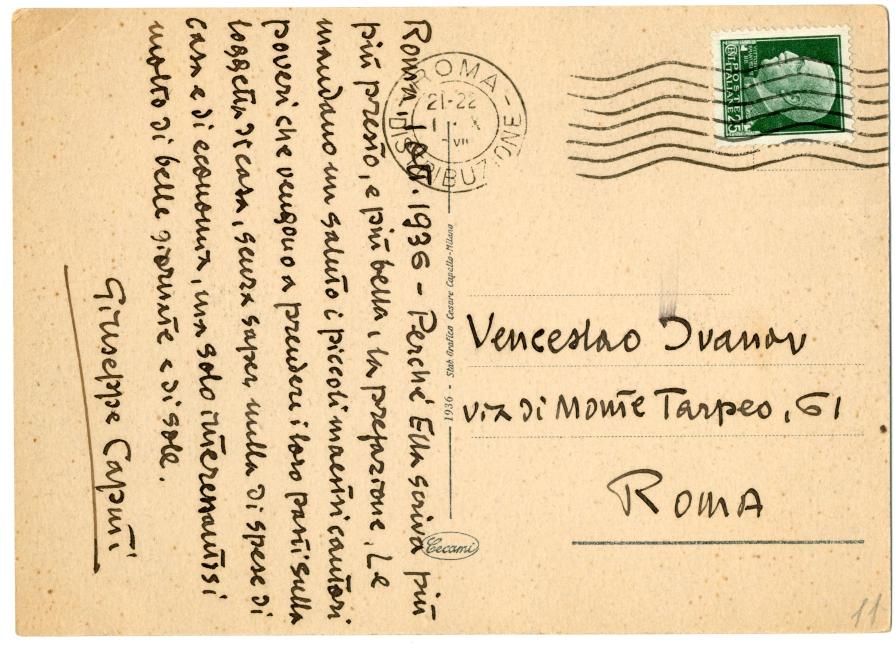 Roma, 1 ott. 1936 - Perché Ella scriva più
più presto, e più bella, la prefazione. Le
mandano un saluto i piccoli maestri cantori
poveri che vengono a prendere i loro pasti sulla
loggetta di casa, senza saper nulla di spese di
casa e di economia, ma solo interessantisi
molto di belle giornate e di sole.
Giuseppe Caputi
ROMA
21-22
1 · X
DISTRIBUZIONE
POSTE
ITALIANE
CENT. 25
1936 - Stab Grafico Cesare Capello-Milano
Cecami
Venceslao Ivanov
via di Monte Tarpeo, 61
ROMA
11